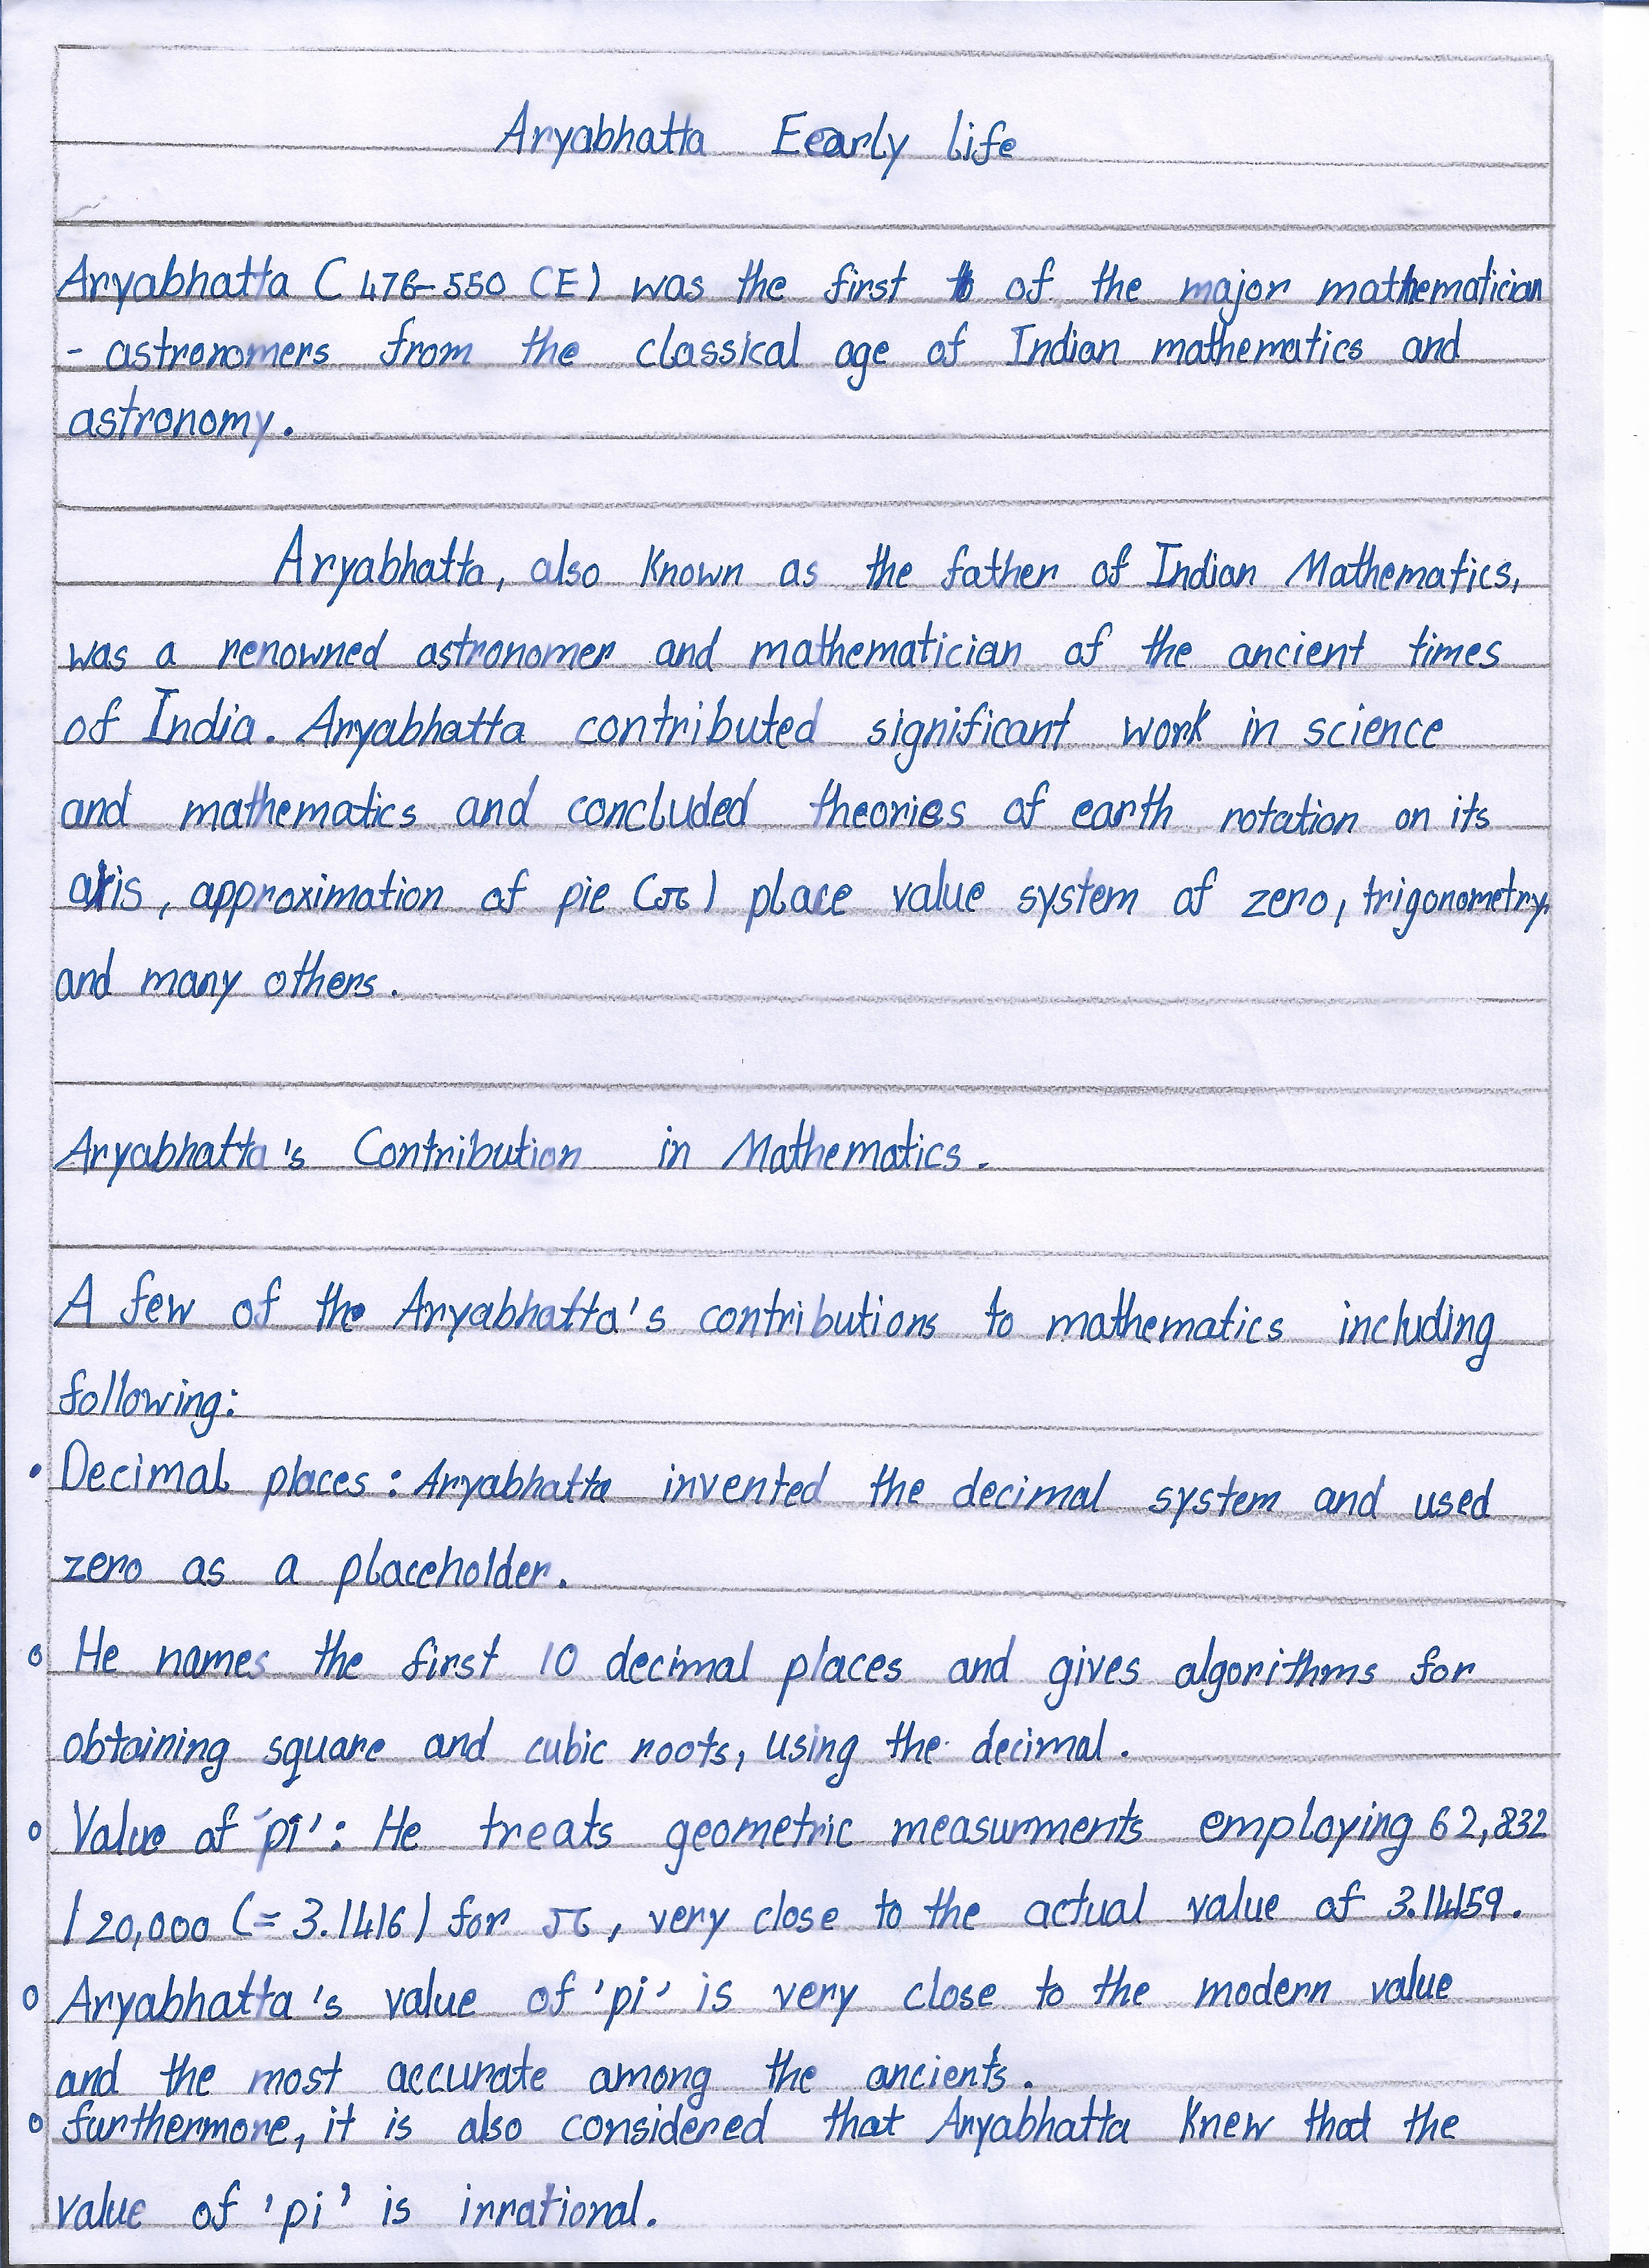 Aryabhatta Eearly life
Aryabhatta (476-550 CE) was the first of the major mathematician
- astronomers from the classical age of Indian mathematics and
astronomy.
Aryabhatta, also known as the father of Indian Mathematics,
was a renowned astronomer and mathematician of the ancient times
of India. Aryabhatta contributed significant work in science
and mathematics and concluded theories of earth rotation on its
axis, approximation of pie (π) place value system of zero, trigonometry
and many others.
Aryabhatta's Contribution in Mathematics.
A few of the Aryabhatta's contributions to mathematics including
following:
• Decimal places: Aryabhatta invented the decimal system and used
zero as a placeholder.
o He names the first 10 decimal places and gives algorithms for
obtaining square and cubic roots, using the decimal.
o Value of 'pi': He treats geometric measurments employing 62,832
/20,000 (= 3.1416) for π, very close to the actual value of 3.14159.
o Aryabhatta's value of 'pi' is very close to the modern value
and the most accurate among the ancients.
o furthermore, it is also considered that Aryabhatta knew that the
value of 'pi' is irrational.